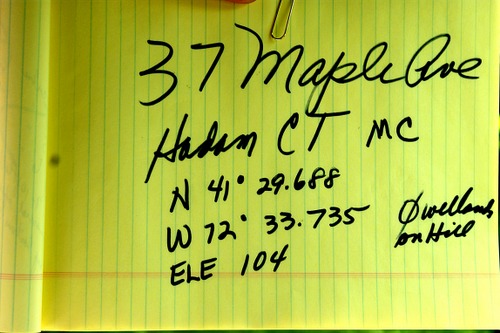 37 Maple Ave
Hadam CT MC
N 41° 29.688
W 72° 33.735
ELE 104
Ø wetlands
on Hill